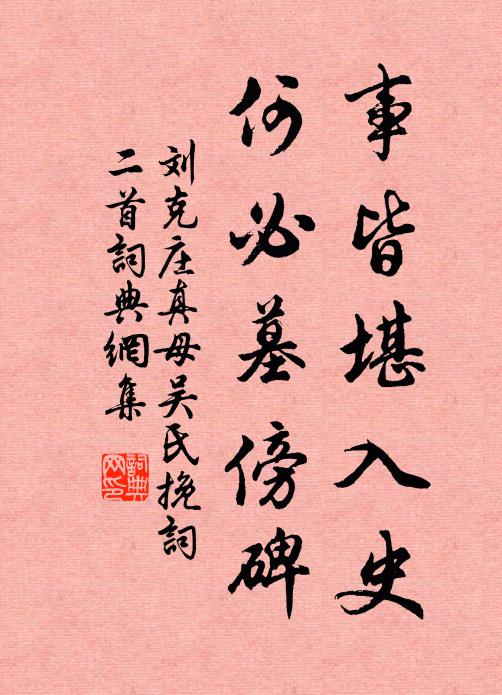 事皆堪入史
何必墓傍碑
刘克庄真母吴氏挽词
二首词典網集
詞典
网印